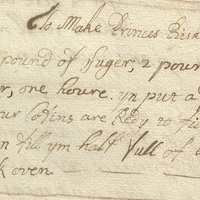 To Make Princes Bisk
pound of suger, 2 pour
r, one houre. yn put a
ur Cofins are Redy to fil
n till ym half full of
k oven.